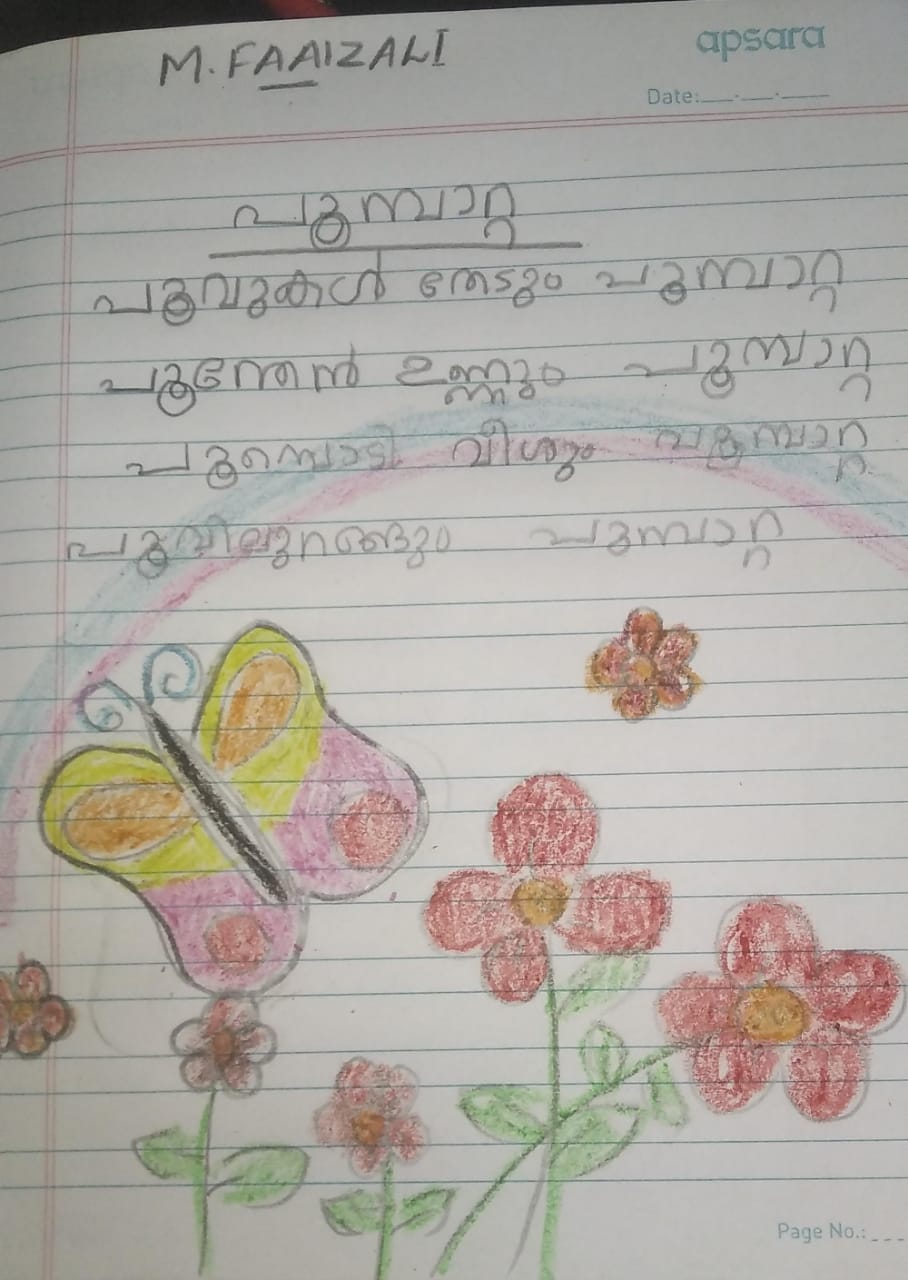 M. FAAIZALI
apsara
Date:__.__.__
പൂമ്പാറ്റ
പൂവുകൾ തേടും പൂമ്പാറ്റ
പൂന്തേൻ ഉണ്ണും പൂമ്പാറ്റ
പൂമ്പൊടി വീശും പൂമ്പാറ്റ
പൂവിലുറങ്ങും പൂമ്പാറ്റ
Page No.:___